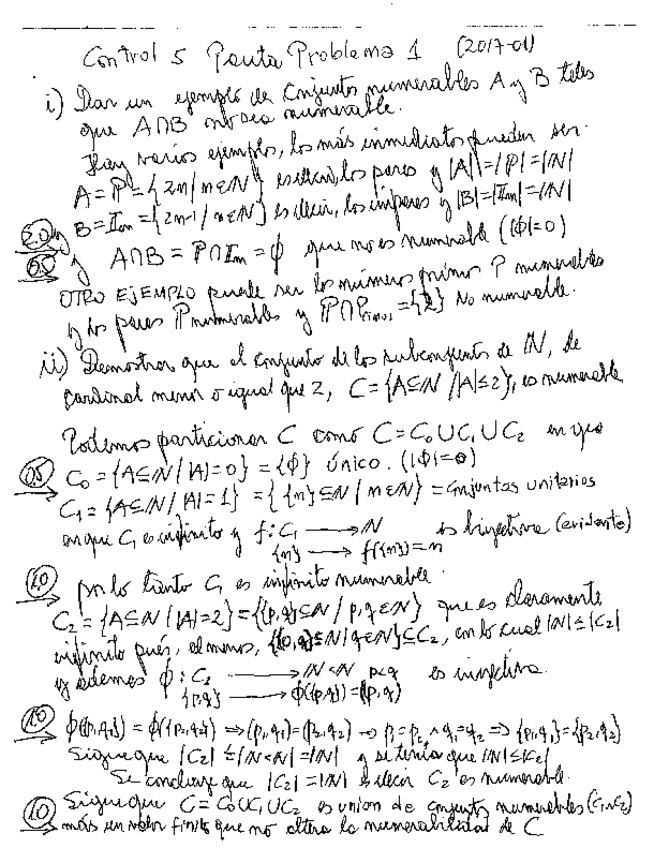 Control 5 Pauta Problema 1 (2017-01)
i) Dar un ejemplo de conjuntos numerables A y B tales
que A∩B no sea numerable.
Hay varios ejemplos, los más inmediatos pueden ser.
A=P={2n/n∈N} es decir, los pares y |A|=|P|=|N|
B=Im={2n-1/n∈N} es decir, los impares y |B|=|Im|=|N|
y A∩B=P∩Im=ϕ que no es numerable (|ϕ|=0)
OTRO EJEMPLO puede ser los números primos P numerables
y los pares P numerables y P∩Primos={2} No numerable.
ii) Demostrar que el conjunto de los subconjuntos de N, de
cardinal menor o igual que 2, C={A⊆N/|A|≤2}, es numerable
Podemos particionar C como C=C₀∪C₁∪C₂ en que
0.5 C₀={A⊆N/|A|=0}={ϕ} único. (|ϕ|=0)
C₁={A⊆N/|A|=1}={{n}⊆N/n∈N}=conjuntos unitarios
en que C₁ es infinito y f:C₁→N es biyectiva (evidente)
{n}→f({n})=n
1.0 por lo tanto C₁ es infinito numerable.
C₂={A⊆N/|A|=2}={{p,q}⊆N/p,q∈N} que es claramente
infinito pués, al menos, {{0,q}⊆N/q∈N}⊆C₂, con lo cual |N|≤|C₂|
y además ϕ:C₂→N×N p<q es inyectiva.
{p,q}→ϕ({p,q})=(p,q)
1.0 ϕ({p₁,q₁})=ϕ({p₂,q₂})⇒(p₁,q₁)=(p₂,q₂)→p₁=p₂∧q₁=q₂⇒{p₁,q₁}={p₂,q₂}
Sigue que |C₂|≤|N×N|=|N| y se tenía que |N|≤|C₂|
Se concluye que |C₂|=|N| es decir C₂ es numerable.
1.0 Sigue que C=C₀∪C₁∪C₂ es union de conjuntos numerables (C₁ y C₂)
más un valor finito que no altera la numerabilidad de C